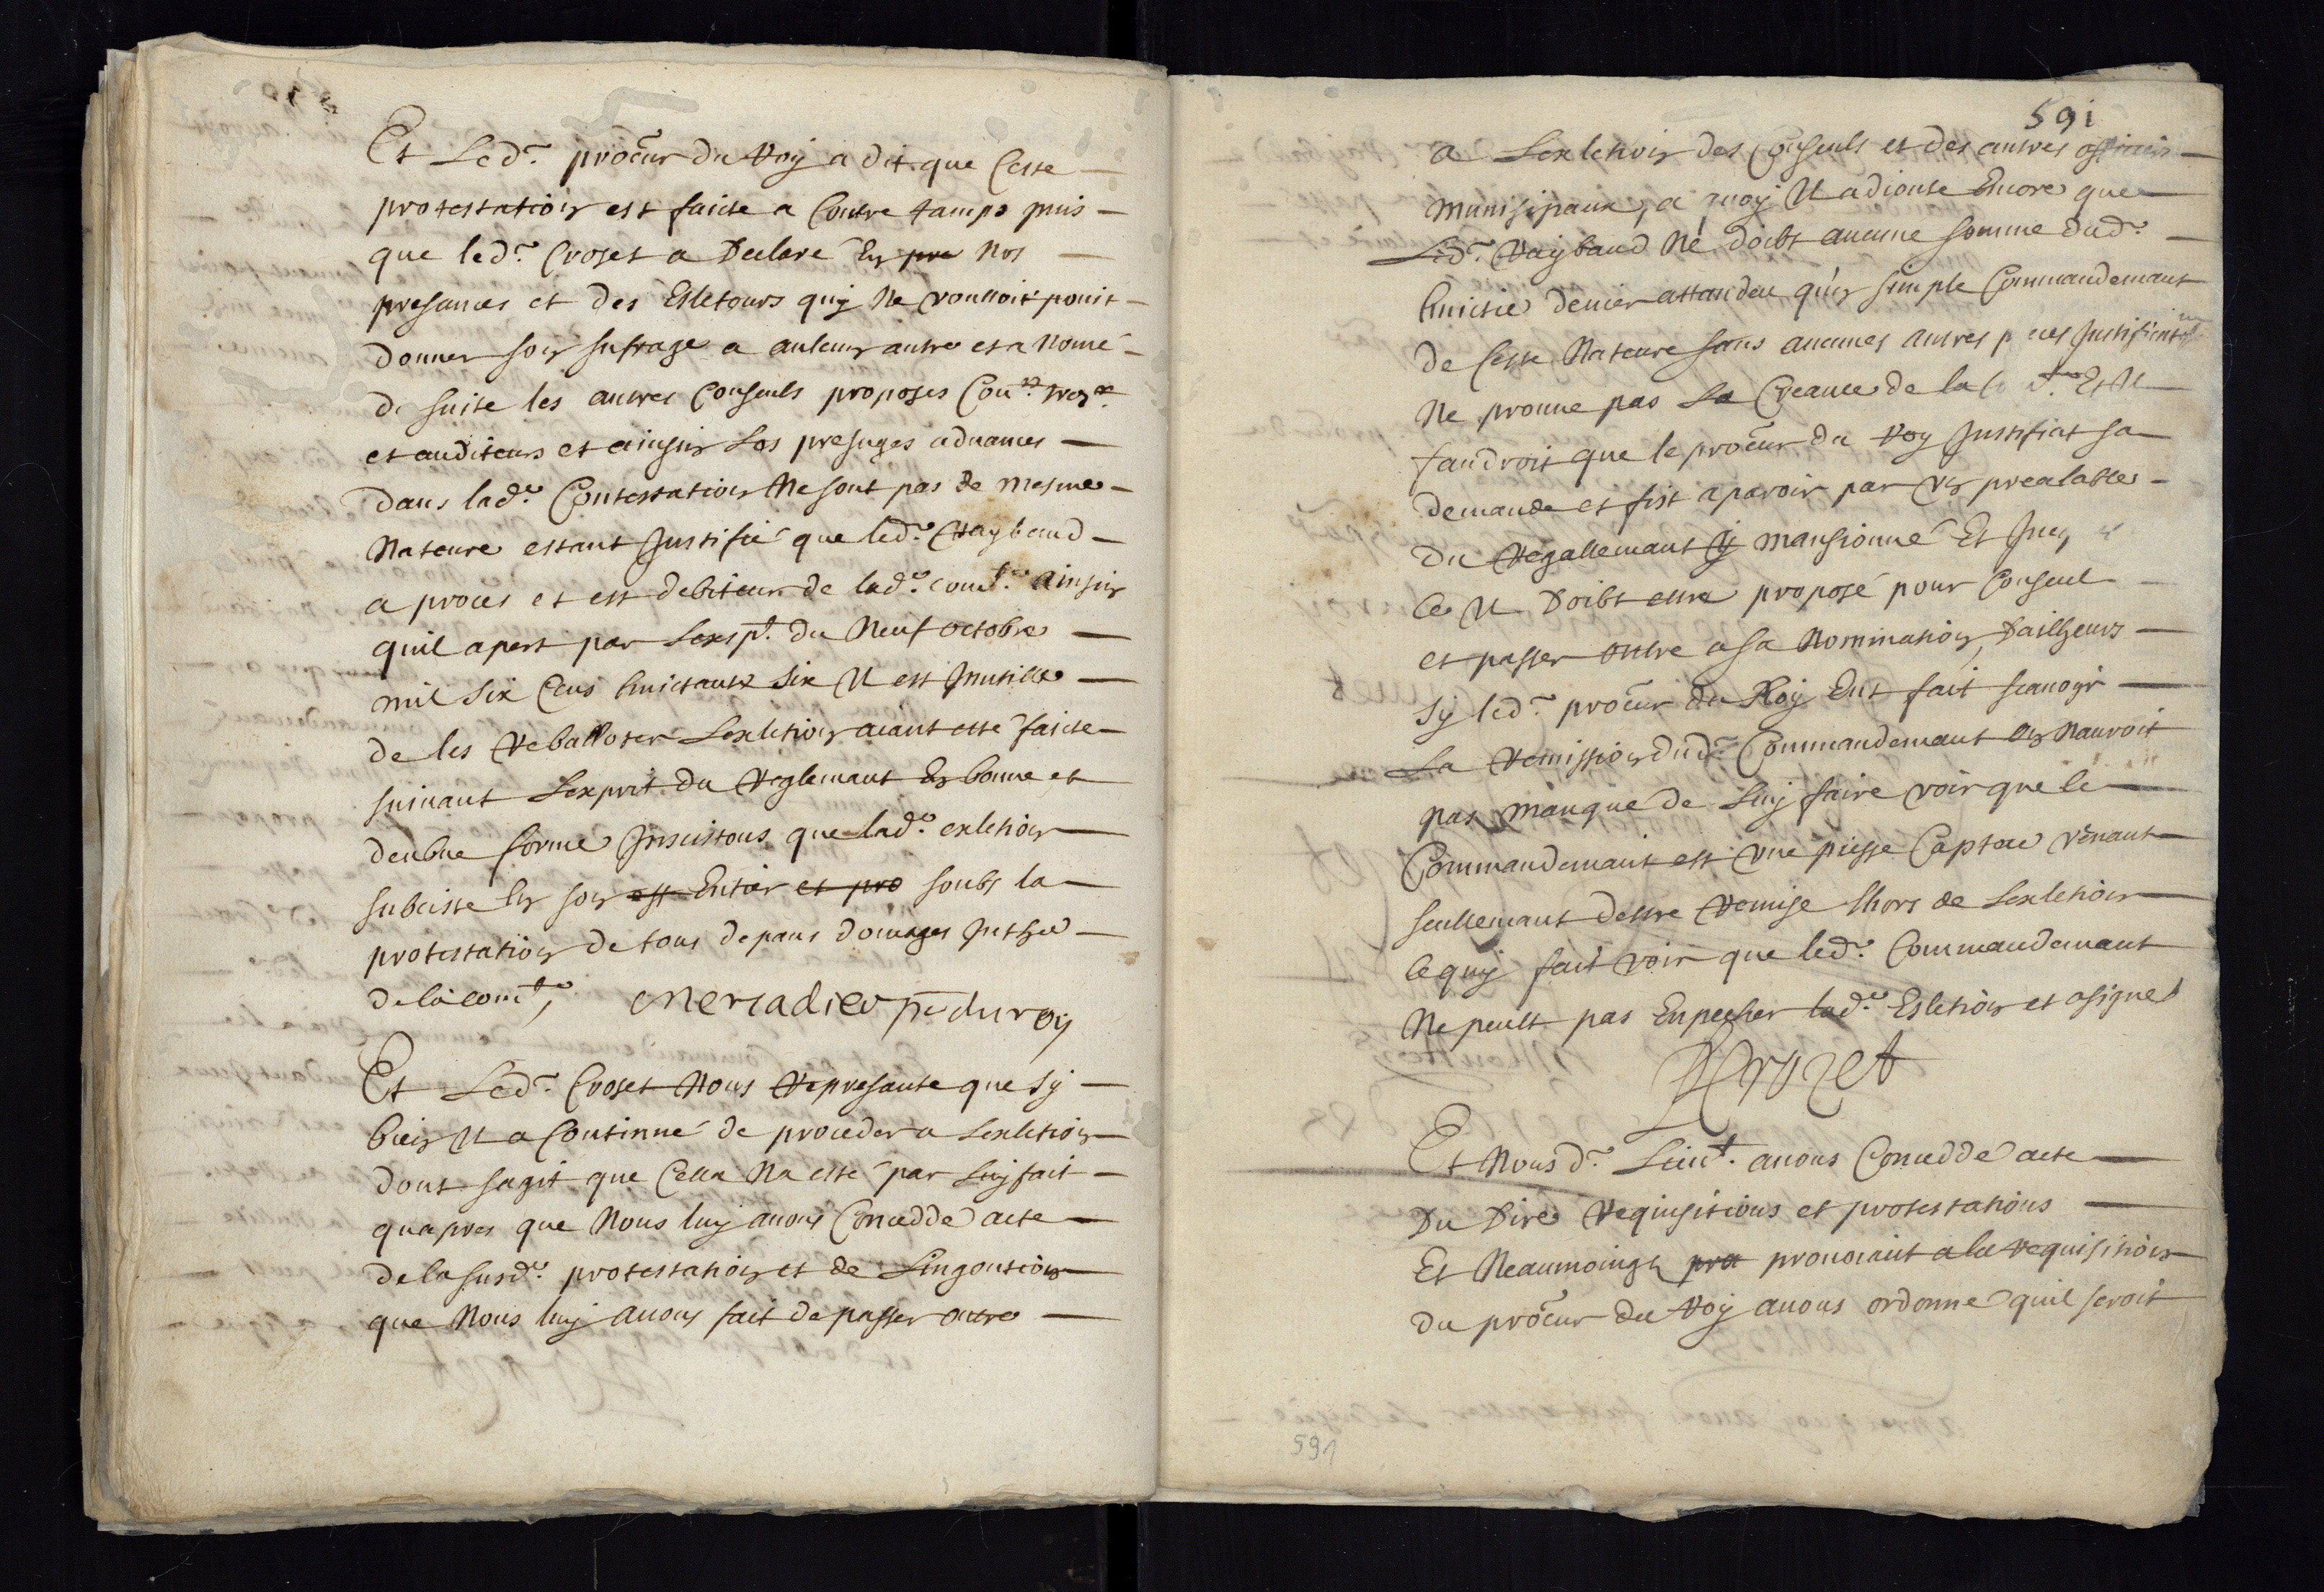 Et Led.t procur du Roy a dit que Ceste
protestation est faicte a Contre tamps puis
que led.t Croset a Declare En pre Nos
presances et des Esletours quy Ne voulloit point
donner son sufrage a aulcun autre et a Nomé
de suite les autres Consuls proposes Cou.rs tres.er
et auditeurs et ainsin Les presuges advances
dans lad.e Contestation Ne sont pas de mesme
Nateure estant Justifié que led.t Raybaud
a proces et est debiteur de lad.e com.té Ainsin
quil apert par Lexsp.t du Neuf octobre
mil six Cens huictante six Il est Inutille
de les Reballoter Lexletion aiant esté faicte
suivant Lexprit du Reglemant En bonne et
deubue forme Insistons que lad.e exletion
subciste En son est Entier et pro soubs la
protestation de tous depans domages Inthes
de la com.té,
Mercadier pr du roy
Et Led.t Croset Nous Represante que sy
bien Il a Continué de proceder a Lexletion
dont sagit que Cella Na esté par Luy fait
quapres que Nous luy avons Concedde acte
de la susd.e protestation et de Linjontion
que Nous luy avons fait de passer outre
591
a Lexletion des Consuls et des autres officiers
munisipaux, a quoy Il adiouste Encore que
Led.t Raybaud Ne doibt aucune somme dud.
huictie denier attandeu qu'un simple Commandemant
de Ceste Nateure sans aucunes autres pieces Justificatives
Ne prouve pas La Creance de la Et Il
faudroit que le procur du Roy Justifiat sa
demande et fist aparoir par un prealable
du Regallemant y mansionné Et Jusq
ce Il Doibt estre proposé pour Conseul
et passer outre a sa Nomination, Dailheurs
sy led.t procur du Roy Eut fait scavoyr
La Remission dud.t Commandemant on Nauroit
pas manque de Luy faire voir que le
Commandemant est une piesse Captee venant
seullemant destre Remise lhors de Lexletion
ce quy fait voir que led.t Commandemant
Ne peult pas Enpecher lad.e Esletion et a signe
Crozet
Et Nous d.t Lieut.t avons Concedde acte
Du Dire Requisitions et protestations
Et Neaumoings pra provoiant a la requisition
du procur du Roy avons ordonne quil seroit
591